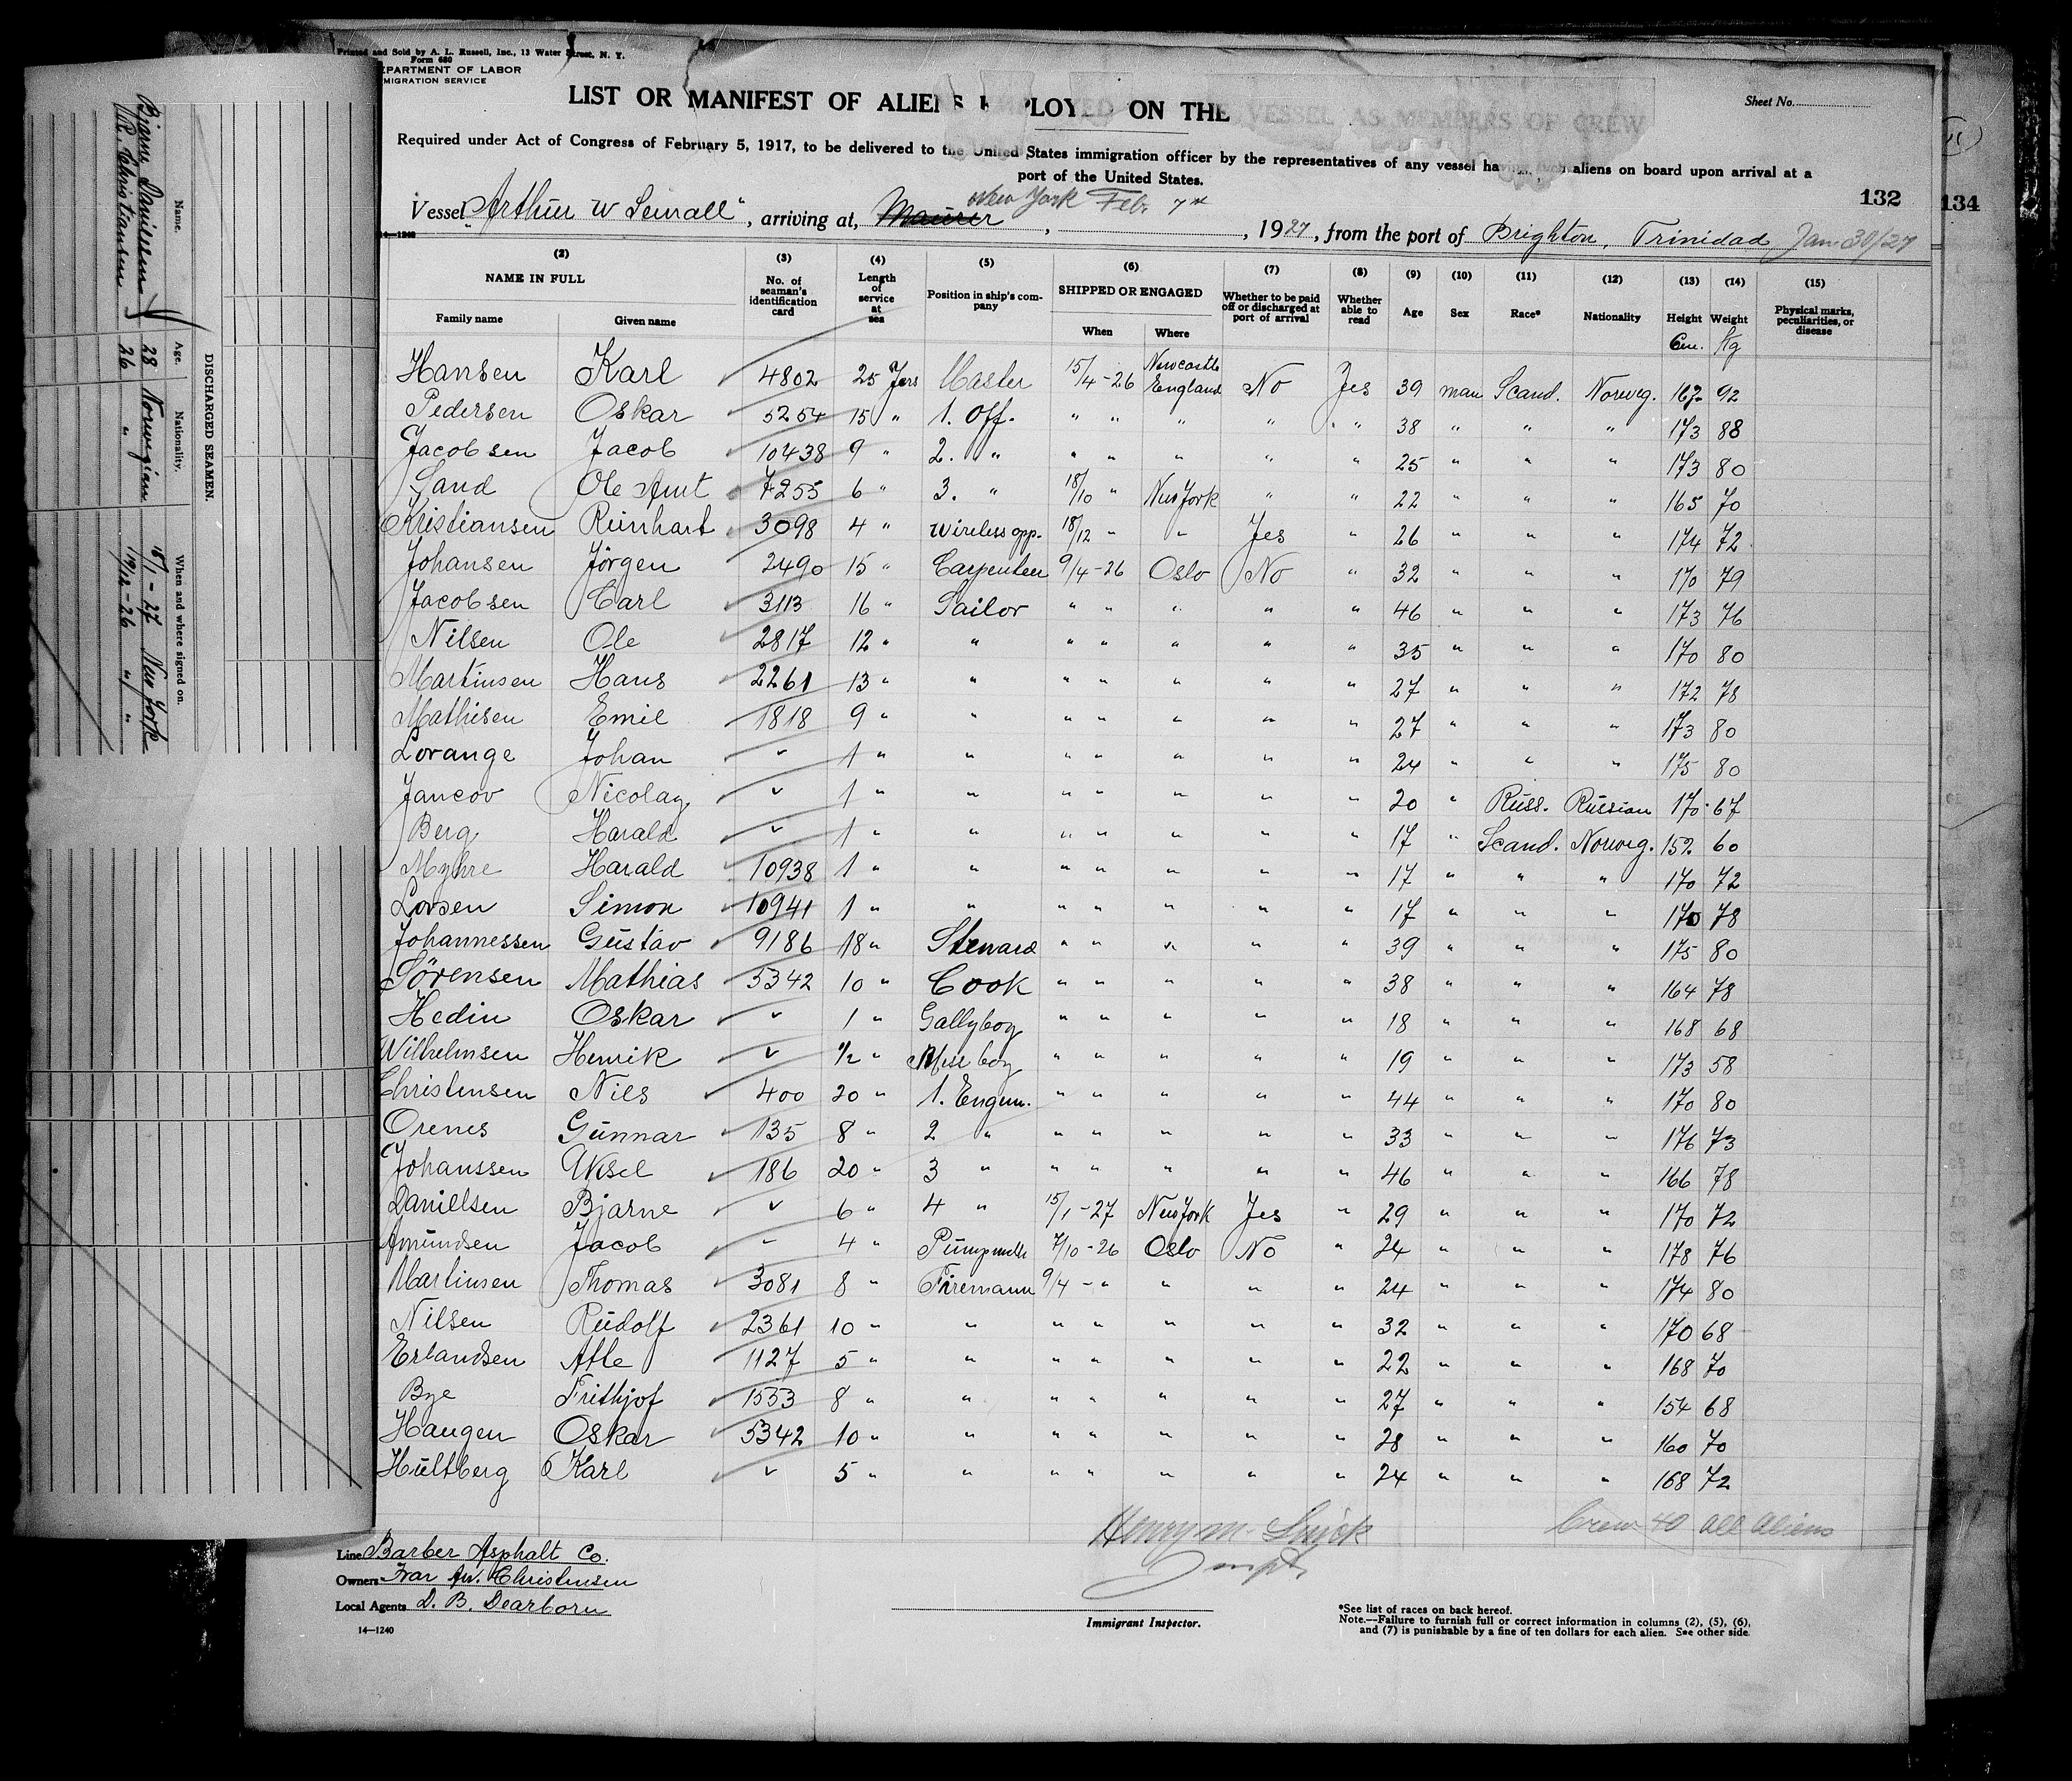 Printed and Sold by A. L. Russell, Inc., 13 Water Street, N. Y.
Form 680
DEPARTMENT OF LABOR
IMMIGRATION SERVICE
Sheet No.
LIST OR MANIFEST OF ALIENS EMPLOYED ON THE VESSEL AS MEMBERS OF CREW
Required under Act of Congress of February 5, 1917, to be delivered to the United States immigration officer by the representatives of any vessel having such aliens on board upon arrival at a
port of the United States.
132 134
Vessel "Arthur W Sewall", arriving at, Maurer New York Feb. 7th, 1927, from the port of Brighton, Trinidad Jan 30/27
14—1240
(2) (3) (4) (5) (6) (7) (8) (9) (10) (11) (12) (13) (14) (15)
NAME IN FULL No. of seaman's identification card Length of service at sea Position in ship's company SHIPPED OR ENGAGED Whether to be paid off or discharged at port of arrival Whether able to read Age Sex Race* Nationality Height Weight Physical marks, peculiarities, or disease
Family name Given name When Where Cm. Kg
Hansen Karl 4802 25 Yers Master 15/4-26 Newcastle England No Yes 39 man Scand. Norweg. 167 92
Pedersen Oskar 5254 15 " 1. Off. " " " " " 38 " " " 173 88
Jacobsen Jacob 10438 9 " 2. " " " " " " 25 " " " 173 80
Sand Ole Amt 7255 6 " 3. " 18/10 " New York " " 22 " " " 165 70
Kristiansen Reinhart 3098 4 " Wireless opp. 18/12 " " Yes " 26 " " " 174 72
Johansen Jörgen 2490 15 " Carpenteer 9/4-26 Oslo No " 32 " " " 170 79
Jacobsen Carl 3113 16 " Sailor " " " " " 46 " " " 173 76
Nilsen Ole 2817 12 " " " " " " " 35 " " " 170 80
Martinsen Hans 2261 13 " " " " " " " 27 " " " 172 78
Mathisen Emil 1818 9 " " " " " " " 27 " " " 173 80
Lorange Johan 1 " " " " " " " 24 " " " 175 80
Jancov Nicolay 1 " " " " " " " 20 " Russ. Russian 170 67
Berg Harald 1 " " " " " " " 17 " Scand. Norweg. 152 60
Myhre Harald 10938 1 " " " " " " " 17 " " " 170 72
Lorsen Simon 10941 1 " " " " " " " 17 " " " 170 78
Johannessen Gustav 9186 18 " Steward " " " " " 39 " " " 175 80
Sörensen Mathias 5342 10 " Cook " " " " " 38 " " " 164 78
Hedin Oskar 1 " Gallyboy " " " " " 18 " " " 168 68
Wilhelmsen Henrik 1/2 " Mess boy " " " " " 19 " " " 173 58
Christensen Nils 400 20 " 1. Engin. " " " " " 44 " " " 170 80
Orenes Gunnar 135 8 " 2 " " " " " " 33 " " " 176 73
Johanssen Aksel 186 20 " 3 " " " " " " 46 " " " 166 78
Daniellsen Bjarne 6 " 4 " 15/1-27 New York Yes " 29 " " " 170 72
Amundsen Jacob 4 " Pumpman 7/10-26 Oslo No " 24 " " " 178 76
Martinsen Thomas 3081 8 " Firemann 9/4 - " " " " 24 " " " 174 80
Nilsen Rudolf 2361 10 " " " " " " " 32 " " " 170 68
Erlandsen Atle 1127 5 " " " " " " " 22 " " " 168 70
Bye Frithjof 1553 8 " " " " " " " 27 " " " 154 68
Haugen Oskar 5342 10 " " " " " " " 28 " " " 160 70
Hultberg Karl 5 " " " " " " " 24 " " " 168 72
Crew 40 all aliens
Henry M.
Line Barber Asphalt Co.
Owners Ivar An. Christensen
Local Agents D. B. Dearborn
14—1240
Immigrant Inspector.
*See list of races on back hereof.
Note.—Failure to furnish full or correct information in columns (2), (5), (6),
and (7) is punishable by a fine of ten dollars for each alien. See other side.
DISCHARGED SEAMEN.
Name. Age. Nationality. When and where signed on.
Bjarne Danielsen 28 Norwegian 18/1-27 New York
R. Christiansen 26 " 19/12-26 " "